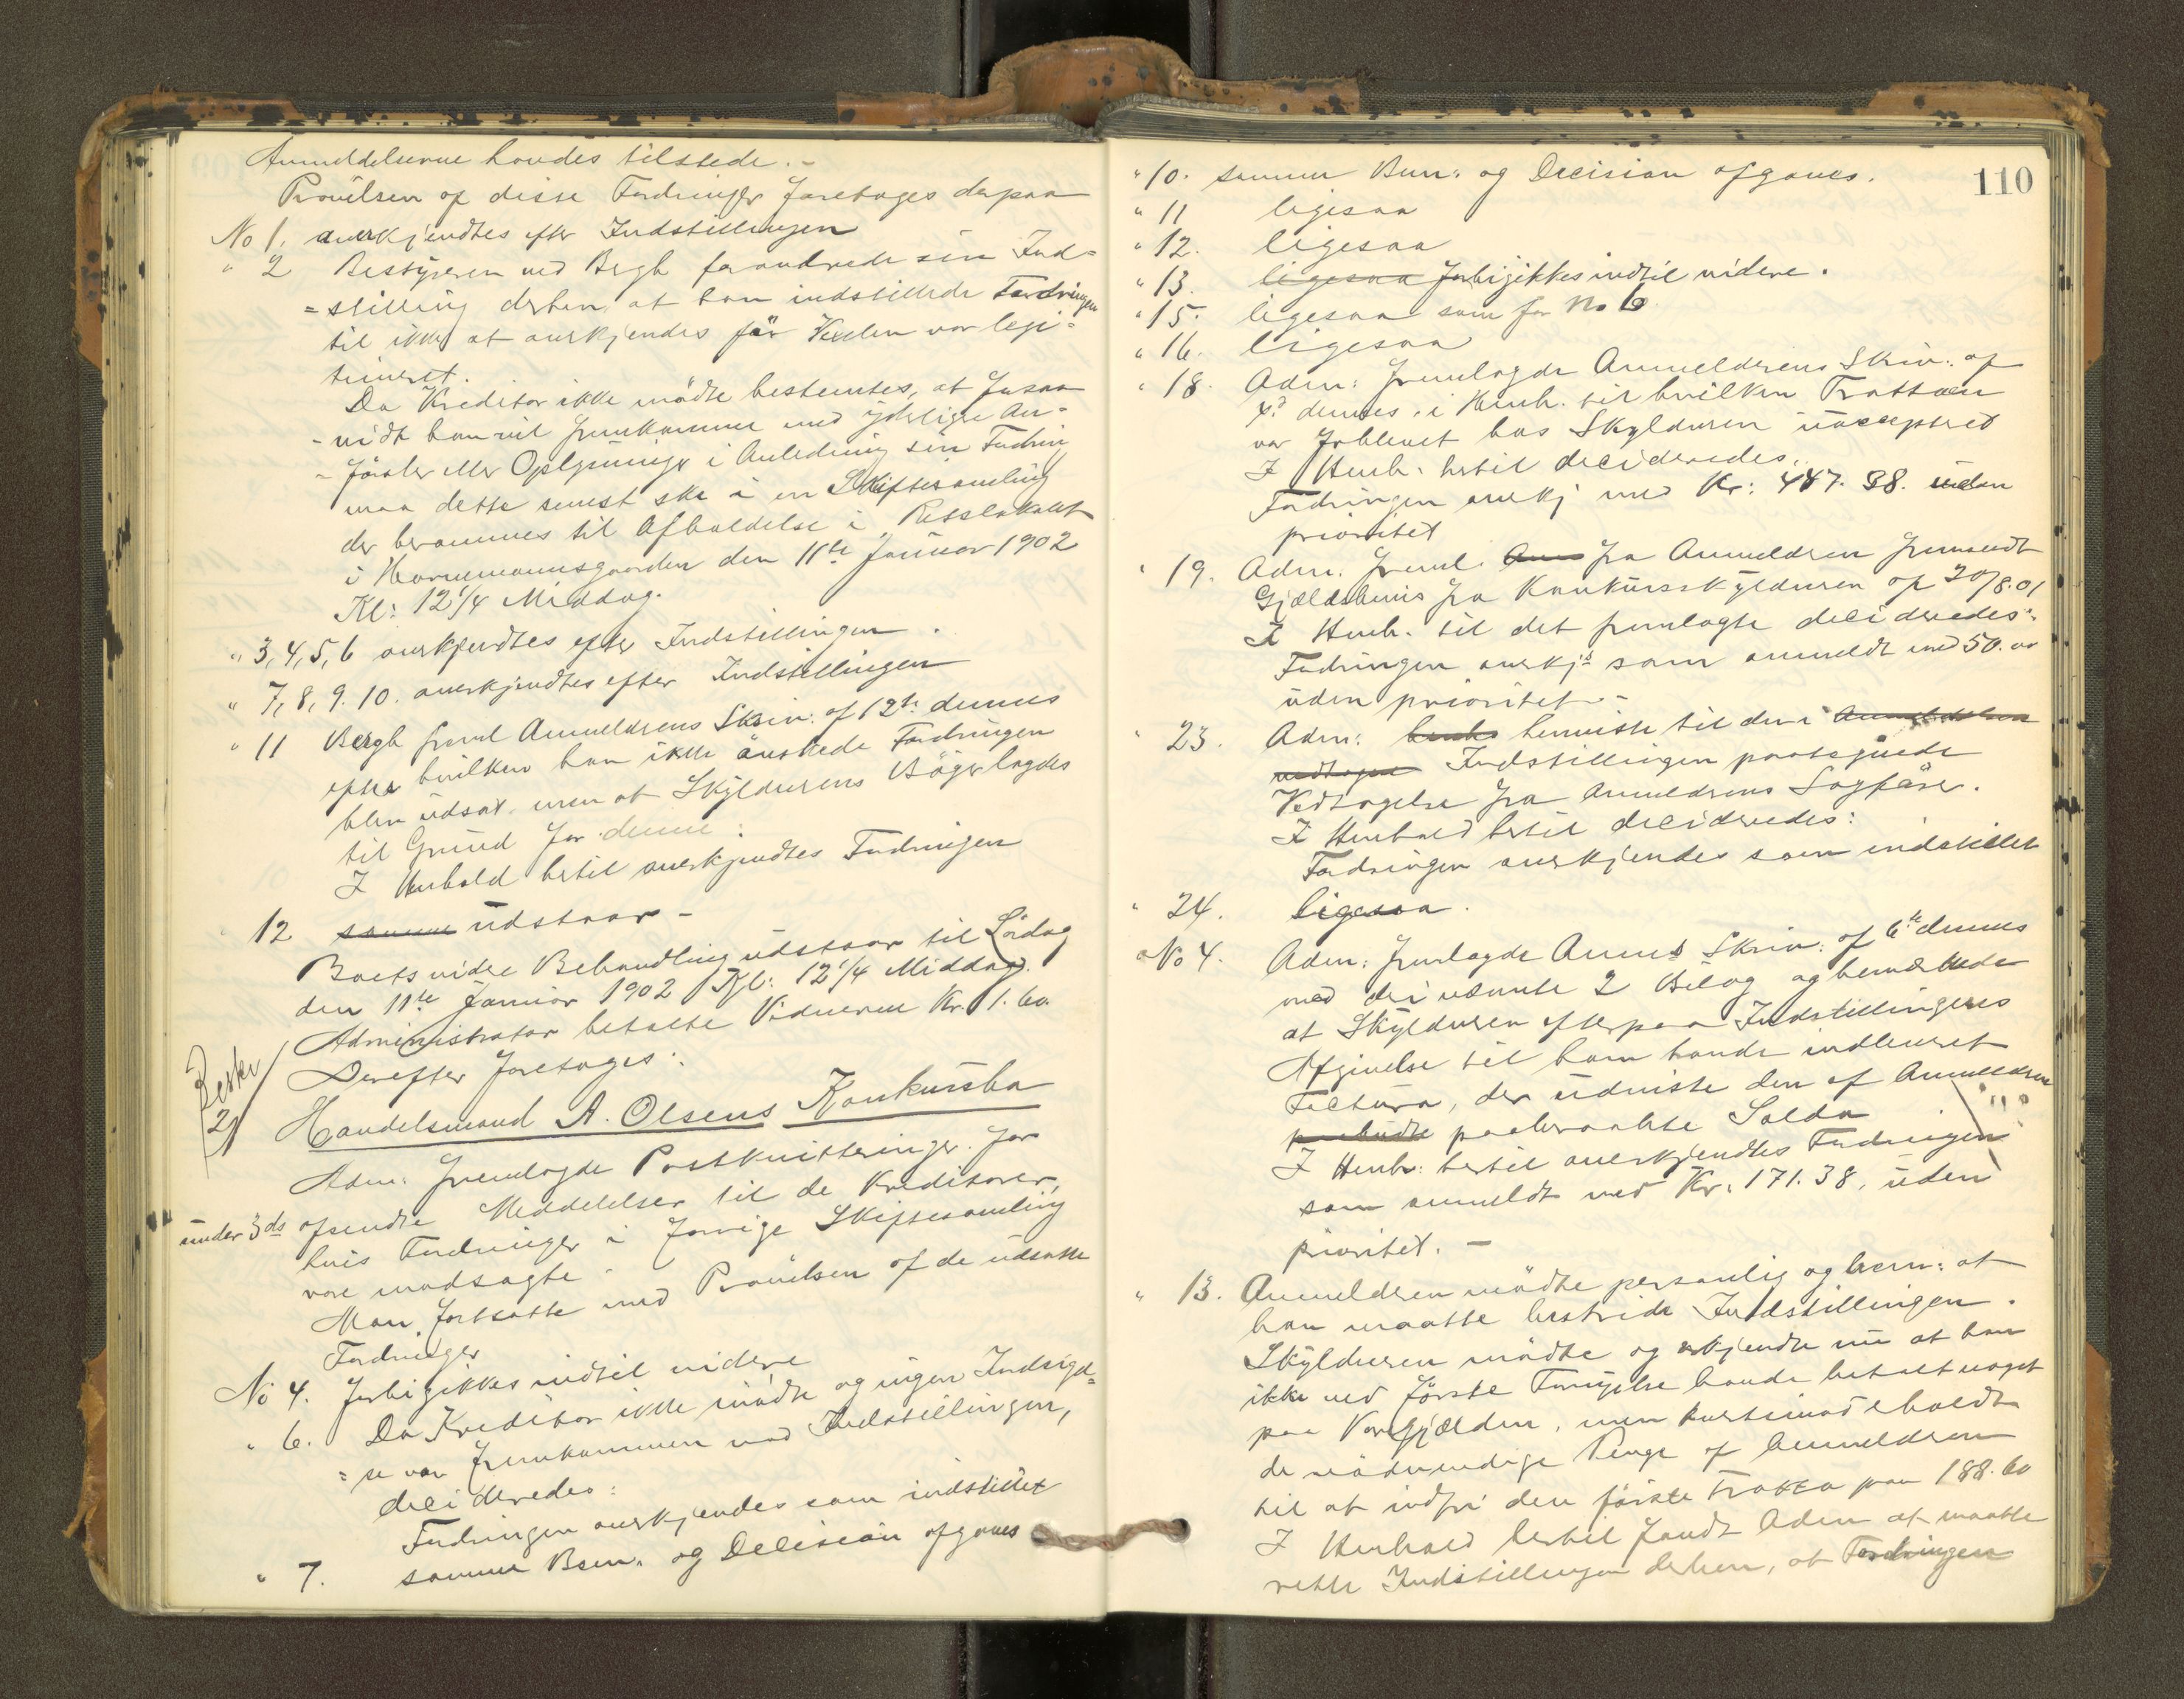 Anmeldelserne havdes tilstede.-
Prøvelsen af disse Fordringer foretoges derpaa
No 1. anerkjendtes efter Indstillingen
" 2 Bestyreren ved Bergh forandrede sin Ind=
=stilling derhen, at han indstillede Fordringen
til ikke at anerkjendes før Vexlen var legi=
timeret.
Da Kreditor ikke mødte bestemtes, at forsaa
-vidt han vil fremkomme med yderligere An=
-førsler eller Oplysninger i Anledning sin Fordring
maa dette senest ske i en Skiftesamling
der berammes til Afholdelse i Retslokalet
i Hornemannsgaarden den 11te Januar 1902
Kl: 12 1/4 Middag.
" 3, 4, 5, 6 anerkjendtes efter Indstillingen.
" 7, 8, 9. 10. anerkjendtes efter Indstillingen
" 11 Bergh freml Anmelderens Skriv: af 12te dennes
efter hvilken han ikke ønskede Fordringen
blev udsat men at Skyldnerens Bøger lagdes
til Grund for denne:
I Henhold hertil anerkjendtes Fordringen
" 12 samme udstaar -
Boets videre Behandling udstaar til Lørdag
den 11te Januar 1902 Kl: 12 1/4 Middag.
Administrator betalte Vidnerne Kr. 1. 60.
Derefter foretoges:
Beskr
21
Handelsmand A. Olsens Konkursbo
Adm: fremlagde Postkvitteringer for
under 3ds afsendte Meddelelser til de Kreditorer,
hvis Fordringer i forrige Skiftesamling
vare modsagte.
Man fortsatte med Prøvelsen af de udsatte
Fordringer
No 4. forbigikkes indtil videre
" 6. Da Kreditor ikke mødte og ingen Indsigel=
=se var fremkommen mod Indstillingen,
decideredes:
Fordringen anerkjendes som indstillet
" 7. samme Bem. og Decision afgaves
110
" 10. samme Bem: og Decision afgaves.
" 11 ligesaa
" 12. ligesaa
" 13. ligesaa forbigikkes indtil videre.
" 15. ligesaa som for No 6
" 16. ligesaa
" 18. Adm: fremlagde Anmelderens Skriv: af
dennes i Henh. til hvilken Tratten
var forblevet hos Skyldneren uaccepteret
I Henh. hertil decideredes:
Fordringen anerkj med Kr: 447. 38. uden
prioritet
" 19. Adm. freml. Anm fra Anmelderen fremsendt
Gjældsbevis fra Konkursskyldneren af 20/8.01
I Henh. til det fremlagte decideredes:
Fordringen anerkjs som anmeldt med 50. 00
uden prioritet -
" 23. Adm: henviste til den i Anmeldelsen
vedtagne Indstillingen paategnede
Vedtagelse fra Anmelderens Sagfører.
I Henhold hertil decideredes:
Fordringen anerkjendes som indstillet
" 24. ligesaa.
No 4. Adm: fremlagde Anmelds Skriv: af 6te dennes
med deri nævnte 2 Bilag og bemærkede
at Skyldneren efterpaa Indstillingens
Afgivelse til ham havde indleveret
Factura, der udviste den af Anmelderen
paabudte paaberaabte Saldo
I Henh: hertil anerkjendtes Fordringen
som anmeldt med Kr. 171. 38, uden
prioritet. -
" 13. Anmelderen mødte personlig og bem: at
han maatte bestride Indstillingen.
Skyldneren mødte og erkjendte nu at han
ikke ved første Fornyelse havde betalt noget
paa Varegjælden, men kortsimod erholdt
de nødvendige Penge af Anmelderen
til at indfri den første Tratta paa 188. 60
I Henhold hertil fandt Adm at maatte
rette Indstillingen derhen, at Fordringen